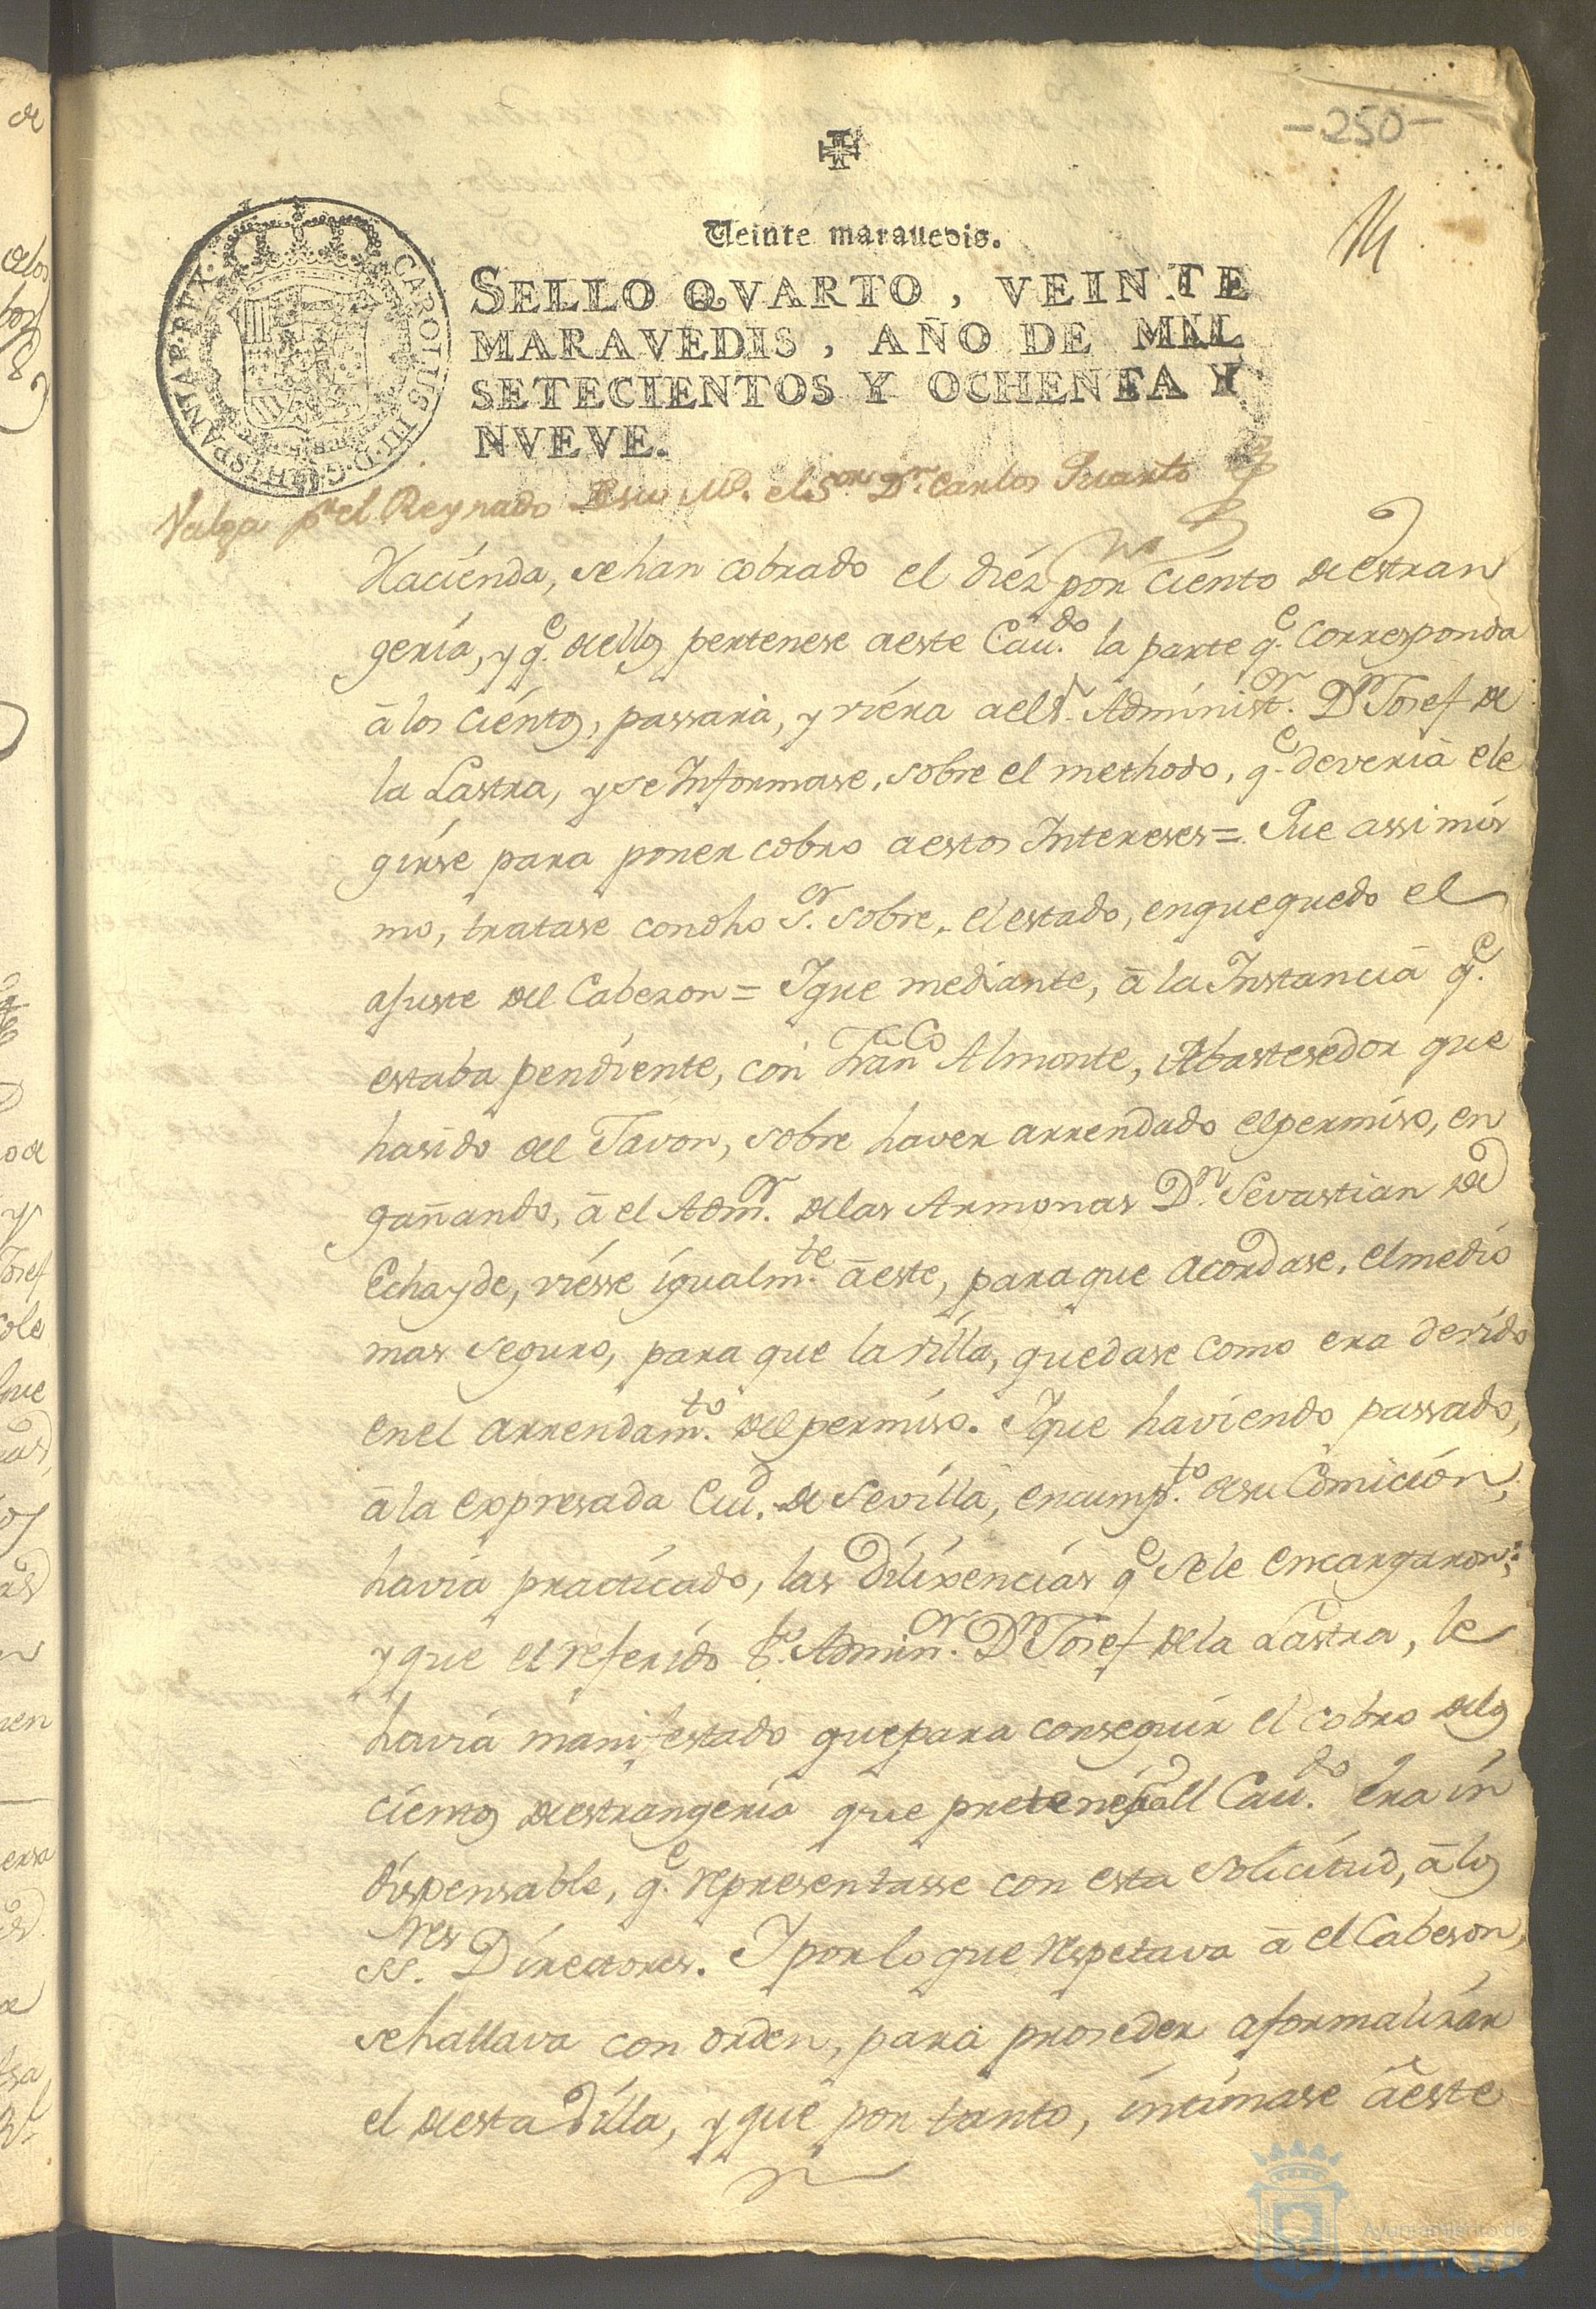 -250-
14
Veinte maravedis.
SELLO QVARTO, VEINTE
MARAVEDIS, AÑO DE MIL
SETECIENTOS Y OCHENTA Y
NVEVE.
CAROLUS III D G HISPANIAR REX
Valga pr el Reynado de su Md. el Sor. Dn. Carlos Quarto
Hacienda, se han cobrado el diéz por ciento de estran
geria, y qe. dellos pertenese a este Cau.do la parte qe. corresponda
â los cientos, passara, y viera a el Sr. Administ.or Dn Josef de
la Lastra, y se Informase, sobre el methodo, qe. deveria ele
girse para poner cobro a estos Intereses = Que assimis
mo, tratase con dho S.or sobre, el estado, en que quedo el
ajuste del Cabezon = Y que mediante, â la Instancia qe.
estaba pendiente, con Fran.co Almonte, Abastesedor que
ha sido del Javon, sobre haver arrendado el permiso, en
gañando, â el Adm.or de las Armonas Dn. Sevastian de
Echayde, viesse igualm.te â este, para que acordase, el medio
mas seguro, para que la villa, quedase como era devido
en el arrendam.to del permiso. Y que haviendo passado,
â la expresada Ciud. de Sevilla, en cump.to de su Comición,
havia practicado, las dilixencias qe se le encargaron;
y que el referido Sr. Admin.or Dn Josef de la Lastra, le
havia manifestado que para conseguir el cobro delos
cientos de estrangeria que pretenes al Cau.do era in
dispensable, qe. representasse con esta solicitud, â los
SS.res Directores. Y por lo que respetava â el Cabeson,
se hallava con orden, para proseder a formalizar
el de esta Villa, y que por tanto, intimase â este
Ayuntamiento de
HUELVA